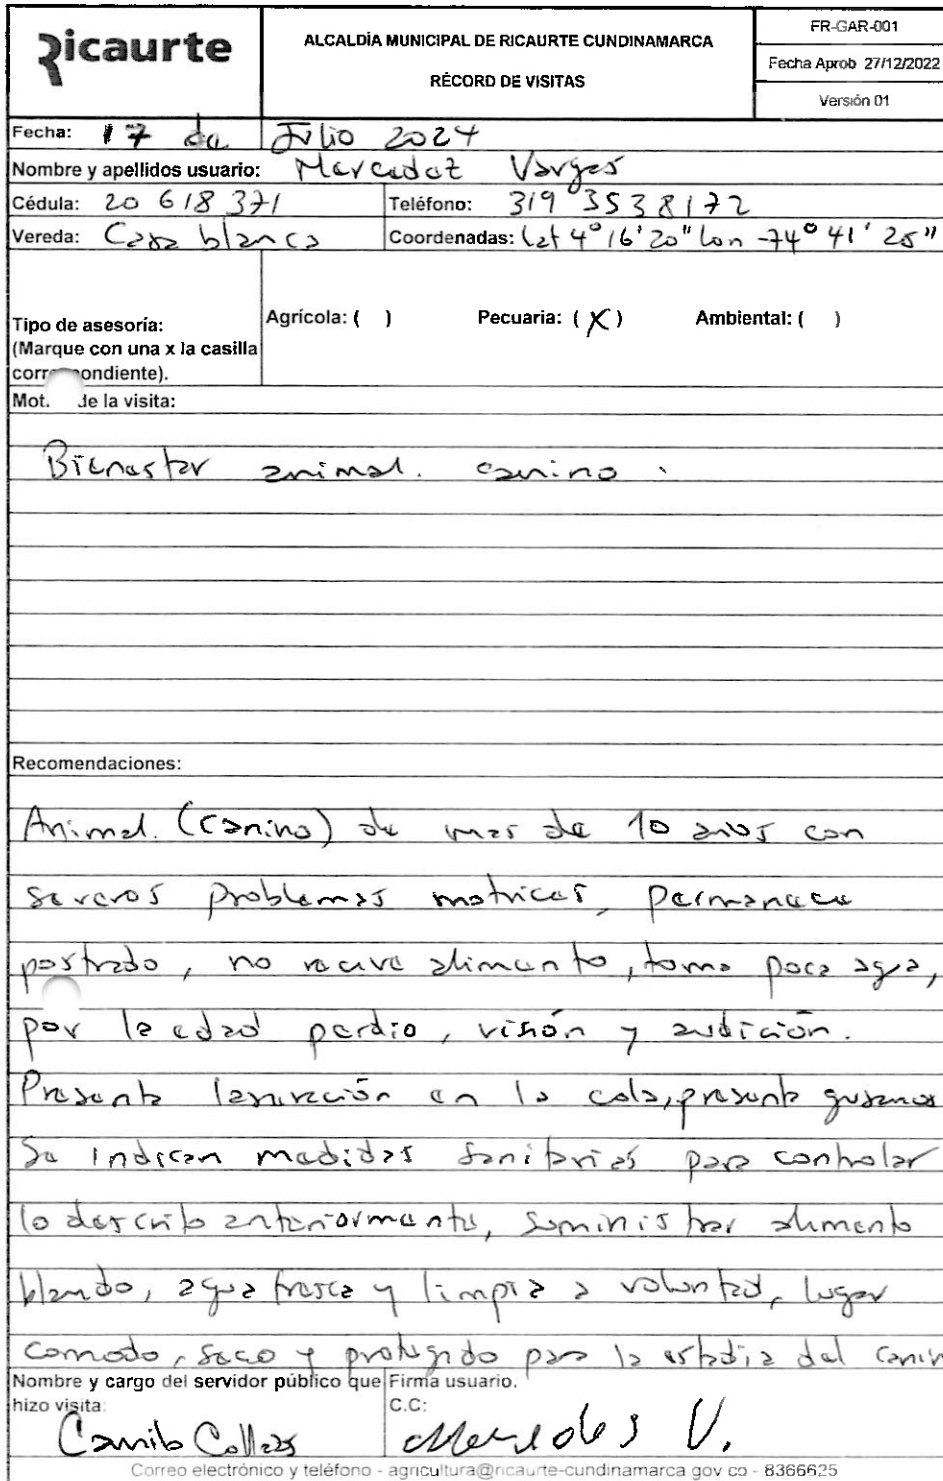 Ricaurte
ALCALDÍA MUNICIPAL DE RICAURTE CUNDINAMARCA
RÉCORD DE VISITAS
FR-GAR-001
Fecha Aprob 27/12/2022
Versión 01
Fecha: 17 de Julio 2024
Nombre y apellidos usuario: Mercedez Vargas
Cédula: 20 618 371 Teléfono: 319 3538172
Vereda: Casa blanca Coordenadas: Lat 4° 16' 20" Lon -74° 41' 25"
Tipo de asesoría: Agrícola: ( ) Pecuaria: (X) Ambiental: ( )
(Marque con una x la casilla
correspondiente).
Mot. de la visita:
Bienestar animal. canino.
Recomendaciones:
Animal. (Canino) de mas de 10 años con
severos problemas motrices, permanece
postrado, no recive alimento, toma poca agua,
por la edad perdio, visión y audición.
Presenta laceración en la cola, presenta gusanos
Se indican medidas sanitarias para controlar
lo descrito anteriormente, suministrar alimento
blando, agua fresca y limpia a voluntad, lugar
comodo, seco y protegido para la estadia del canin
Nombre y cargo del servidor público que
hizo visita:
Camilo Collazos
Firma usuario.
C.C:
Mercedes V.
Correo electrónico y teléfono - agricultura@ricaurte-cundinamarca gov co - 8366625